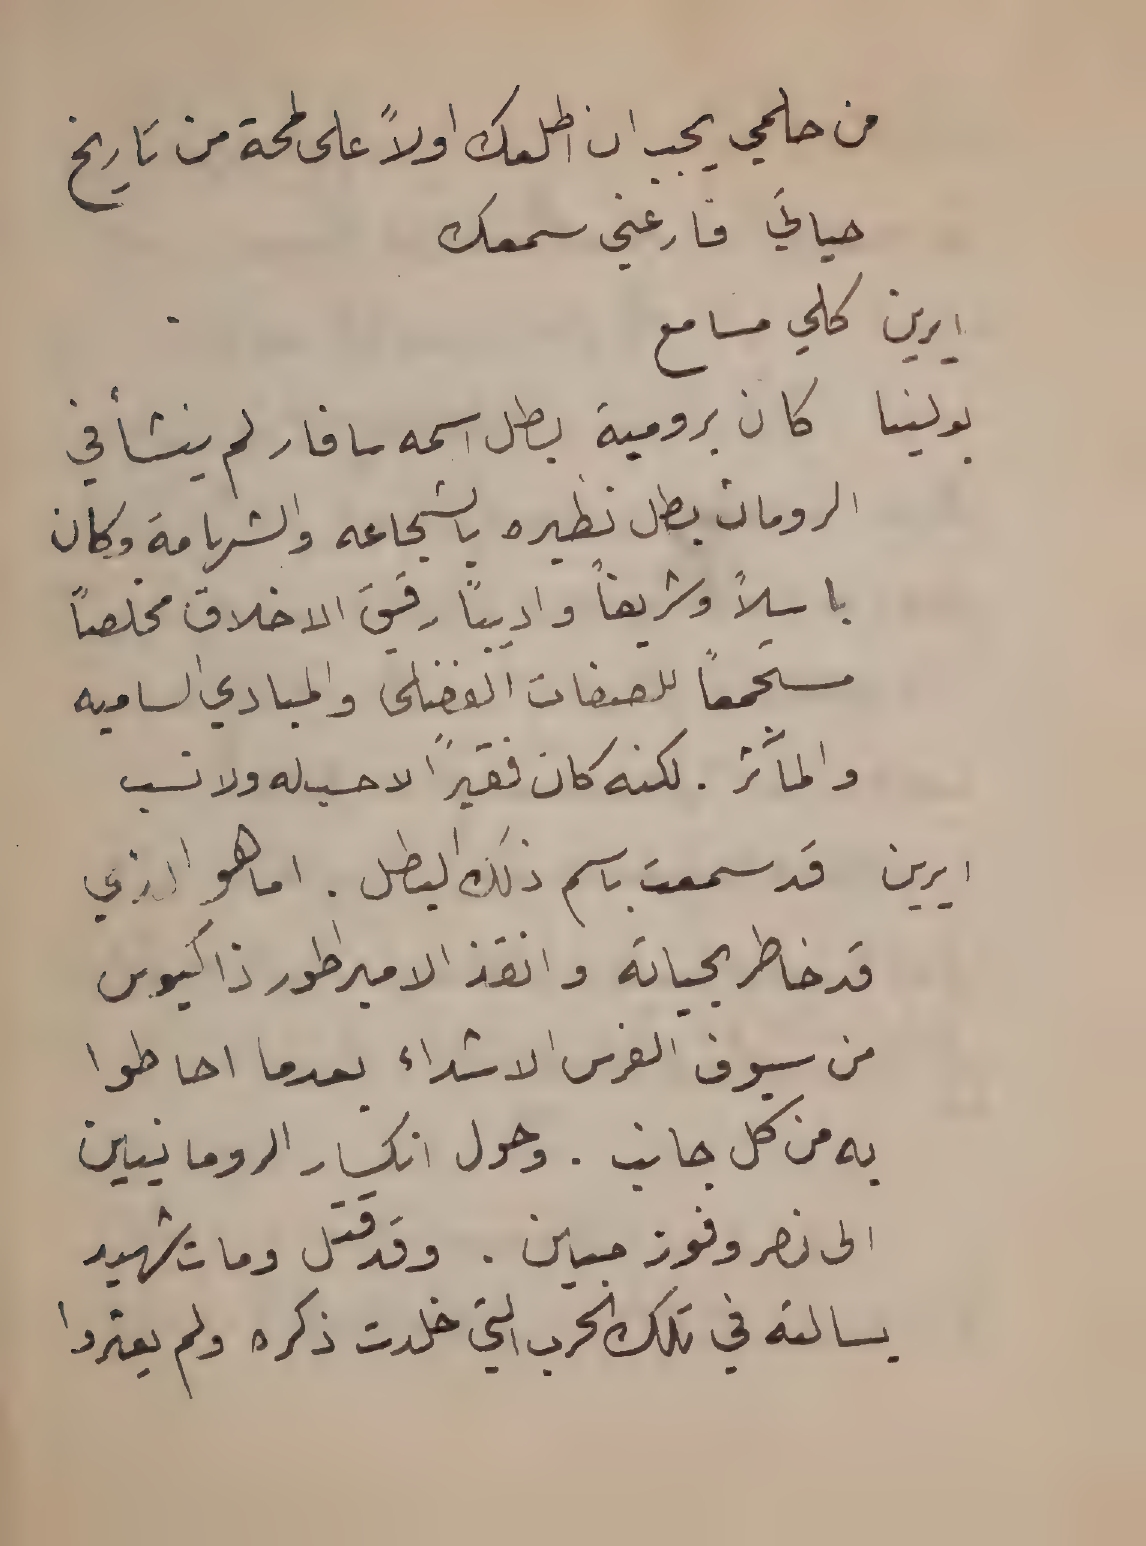 من حلمي يجب ان اطلعك اولاً على لمحة من تاريخ
حياتي فارعني سمعك
ايرين كلي مسامع
بولينا كان برومية بطل اسمه سافار لم ينشأ في
الرومان بطل نظيره بالشجاعه والشهامة وكان
باسلاً وشريفاً واديباً رقيق الاخلاق مخلصاً
مستجمعاً للصفات الفضلى والمبادي الساميه
والمآثر . لكنه كان فقيراً لا حسب له ولا نسب
ايرين قد سمعت باسم ذلك البطل . اما هو الذي
قد خاطر بحياته وانقذ الامبراطور ذاكيوس
من سيوف الفرس الاشداء بعدما احاطوا
به من كل جانب . وحول انكسار الرومانيين
الى نصر وفوز مبين . وقد قتل ومات شهيد
بسالته في تلك الحرب التي خلدت ذكره ولم يعثروا